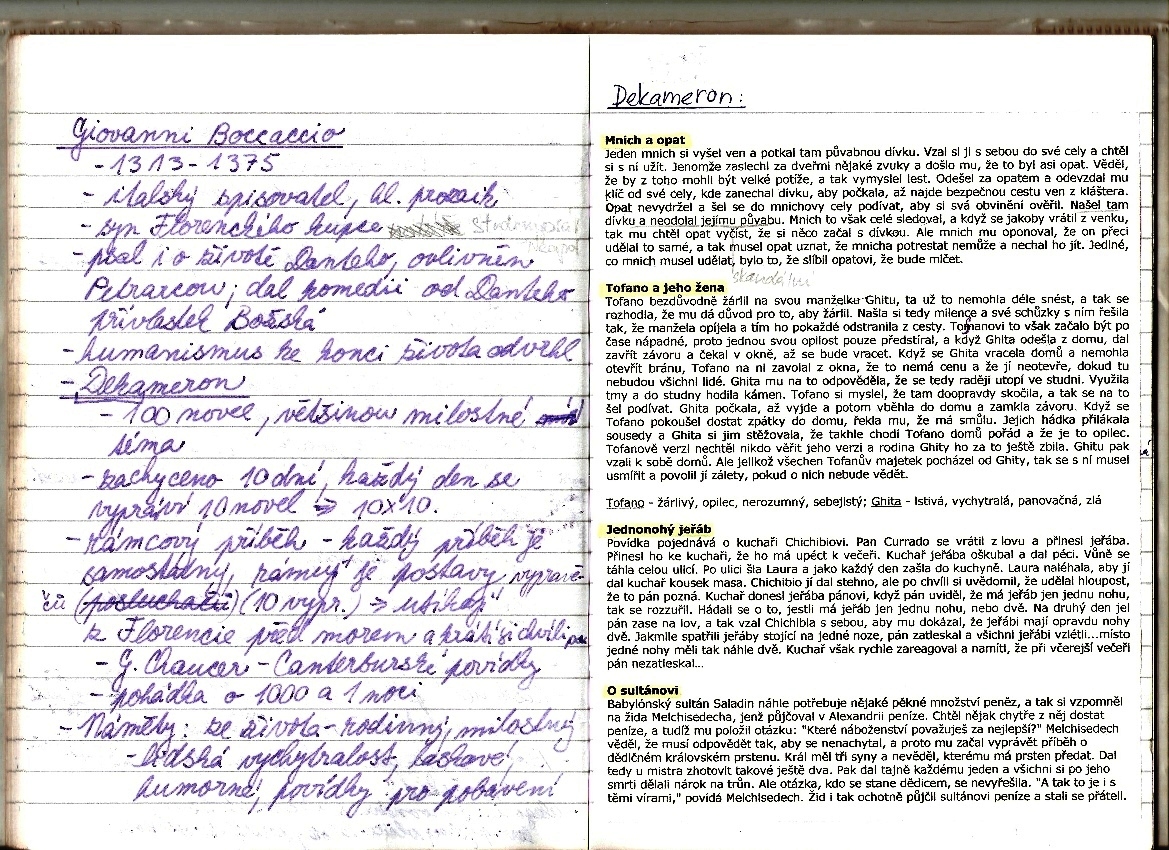 Giovanni Boccaccio
- 1313 - 1375
- italský spisovatel, hl. prozaik
- syn Florenckého kupce
- psal i o životě Danteho, ovlivněn
Petrarcou; dal komedii od Danteho
přívlastek Božská
- humanismus ke konci života odvrhl
- Dekameron
- 100 novel, většinou milostné
téma
- zachyceno 10 dní, každý den se
vypráví 10 novel ⇒ 10x10.
- rámcový příběh - každý příběh je
samostatný, rámují je postavy vypravě-
čů (posluchačů) (10 vypr.) ⇒ utíkají
z Florencie před morem a krátí si chvíli
- G. Chaucer - Canterburské povídky
- pohádka o 1000 a 1 noci
- Náměty: ze života - rodinný, milostný
- lidská vychytralost, laškavé,
humorné, povídky pro pobavení
Dekameron:
Mnich a opat
Jeden mnich si vyšel ven a potkal tam půvabnou dívku. Vzal si jí s sebou do své cely a chtěl
si s ní užít. Jenomže zaslechl za dveřmi nějaké zvuky a došlo mu, že to byl asi opat. Věděl,
že by z toho mohli být velké potíže, a tak vymyslel lest. Odešel za opatem a odevzdal mu
klíč od své cely, kde zanechal dívku, aby počkala, až najde bezpečnou cestu ven z kláštera.
Opat nevydržel a šel se do mnichovy cely podívat, aby si svá obvinění ověřil. Našel tam
dívku a neodolal jejímu půvabu. Mnich to však celé sledoval, a když se jakoby vrátil z venku,
tak mu chtěl opat vyčíst, že si něco začal s dívkou. Ale mnich mu oponoval, že on přeci
udělal to samé, a tak musel opat uznat, že mnicha potrestat nemůže a nechal ho jít. Jediné,
co mnich musel udělat, bylo to, že slíbil opatovi, že bude mlčet.
skandální
Tofano a jeho žena
Tofano bezdůvodně žárlil na svou manželku Ghitu, ta už to nemohla déle snést, a tak se
rozhodla, že mu dá důvod pro to, aby žárlil. Našla si tedy milence a své schůzky s ním řešila
tak, že manžela opíjela a tím ho pokaždé odstranila z cesty. Tofanovi to však začalo být po
čase nápadné, proto jednou svou opilost pouze předstíral, a když Ghita odešla z domu, dal
zavřít závoru a čekal v okně, až se bude vracet. Když se Ghita vracela domů a nemohla
otevřít bránu, Tofano na ni zavolal z okna, že to nemá cenu a že jí neotevře, dokud tu
nebudou všichni lidé. Ghita mu na to odpověděla, že se tedy raději utopí ve studni. Využila
tmy a do studny hodila kámen. Tofano si myslel, že tam doopravdy skočila, a tak se na to
šel podívat. Ghita počkala, až vyjde a potom vběhla do domu a zamkla závoru. Když se
Tofano pokoušel dostat zpátky do domu, řekla mu, že má smůlu. Jejich hádka přilákala
sousedy a Ghita si jim stěžovala, že takhle chodí Tofano domů pořád a že je to opilec.
Tofanově verzi nechtěl nikdo věřit jeho verzi a rodina Ghity ho za to ještě zbila. Ghitu pak
vzali k sobě domů. Ale jelikož všechen Tofanův majetek pocházel od Ghity, tak se s ní musel
usmířit a povolil jí zálety, pokud o nich nebude vědět.
Tofano - žárlivý, opilec, nerozumný, sebejistý; Ghita - lstivá, vychytralá, panovačná, zlá
Jednonohý jeřáb
Povídka pojednává o kuchaři Chichibiovi. Pan Currado se vrátil z lovu a přinesl jeřába.
Přinesl ho ke kuchaři, že ho má upéct k večeři. Kuchař jeřába oškubal a dal péci. Vůně se
táhla celou ulicí. Po ulici šla Laura a jako každý den zašla do kuchyně. Laura naléhala, aby jí
dal kuchař kousek masa. Chichibio jí dal stehno, ale po chvíli si uvědomil, že udělal hloupost,
že to pán pozná. Kuchař donesl jeřába pánovi, když pán uviděl, že má jeřáb jen jednu nohu,
tak se rozzuřil. Hádali se o to, jestli má jeřáb jen jednu nohu, nebo dvě. Na druhý den jel
pán zase na lov, a tak vzal Chichibia s sebou, aby mu dokázal, že jeřábi mají opravdu nohy
dvě. Jakmile spatřili jeřáby stojící na jedné noze, pán zatleskal a všichni jeřábi vzlétli...místo
jedné nohy měli tak náhle dvě. Kuchař však rychle zareagoval a namítl, že při včerejší večeři
pán nezatleskal...
O sultánovi
Babylónský sultán Saladin náhle potřebuje nějaké pěkné množství peněz, a tak si vzpomněl
na žida Melchisedecha, jenž půjčoval v Alexandrii peníze. Chtěl nějak chytře z něj dostat
peníze, a tudíž mu položil otázku: "Které náboženství považuješ za nejlepší?" Melchisedech
věděl, že musí odpovědět tak, aby se nenachytal, a proto mu začal vyprávět příběh o
dědičném královském prstenu. Král měl tři syny a nevěděl, kterému má prsten předat. Dal
tedy u mistra zhotovit takové ještě dva. Pak dal tajně každému jeden a všichni si po jeho
smrti dělali nárok na trůn. Ale otázka, kdo se stane dědicem, se nevyřešila. "A tak to je i s
těmi vírami," povídá Melchisedech. Žid i tak ochotně půjčil sultánovi peníze a stali se přáteli.